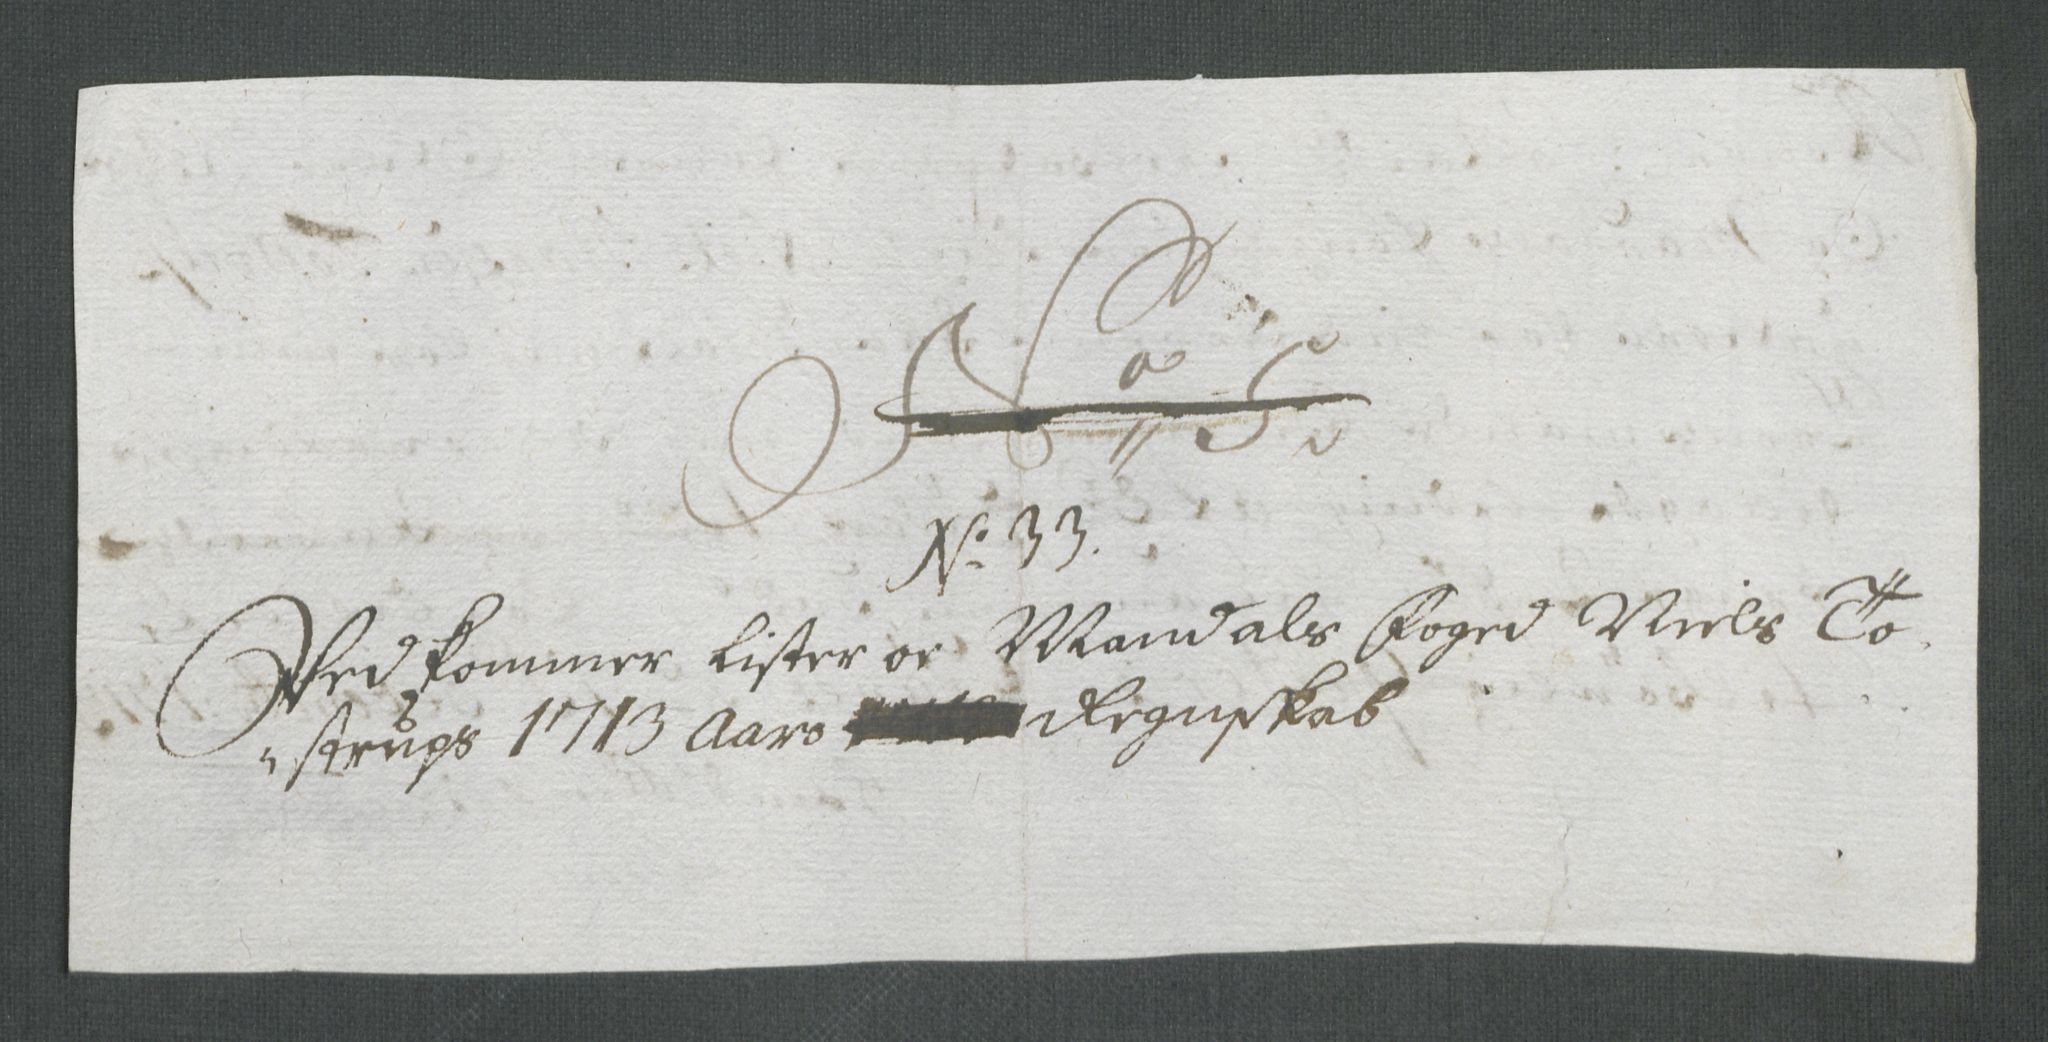 No 5
No 33.
Vedkommer Lister oc Mandals Foged Niels To-
strups 1713 Aars Regnskab